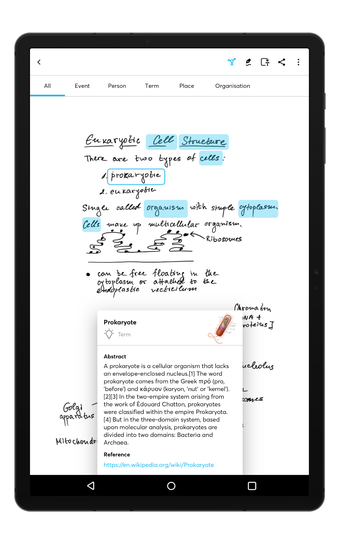 All Event Person Term Place Organisation
Eukaryotic Cell Structure
There are two types of cells:
1. prokaryotic
2. eukaryotic
Single called organism with simple cytoplasm.
Cells make up multicellular organism.
Ribosomes
• can be free floating in the
cytoplasm or attached to the
endoplastic
Prokaryote
Term
Abstract
A prokaryote is a cellular organism that lacks
an envelope-enclosed nucleus.[1] The word
prokaryote comes from the Greek πρό (pro,
'before') and κάρυον (karyon, 'nut' or 'kernel').
[2][3] In the two-empire system arising from
the work of Édouard Chatton, prokaryotes
were classified within the empire Prokaryota.
[4] But in the three-domain system, based
upon molecular analysis, prokaryotes are
divided into two domains: Bacteria and
Archaea.
Reference
https://en.wikipedia.org/wiki/Prokaryote
Golgi
apparatus